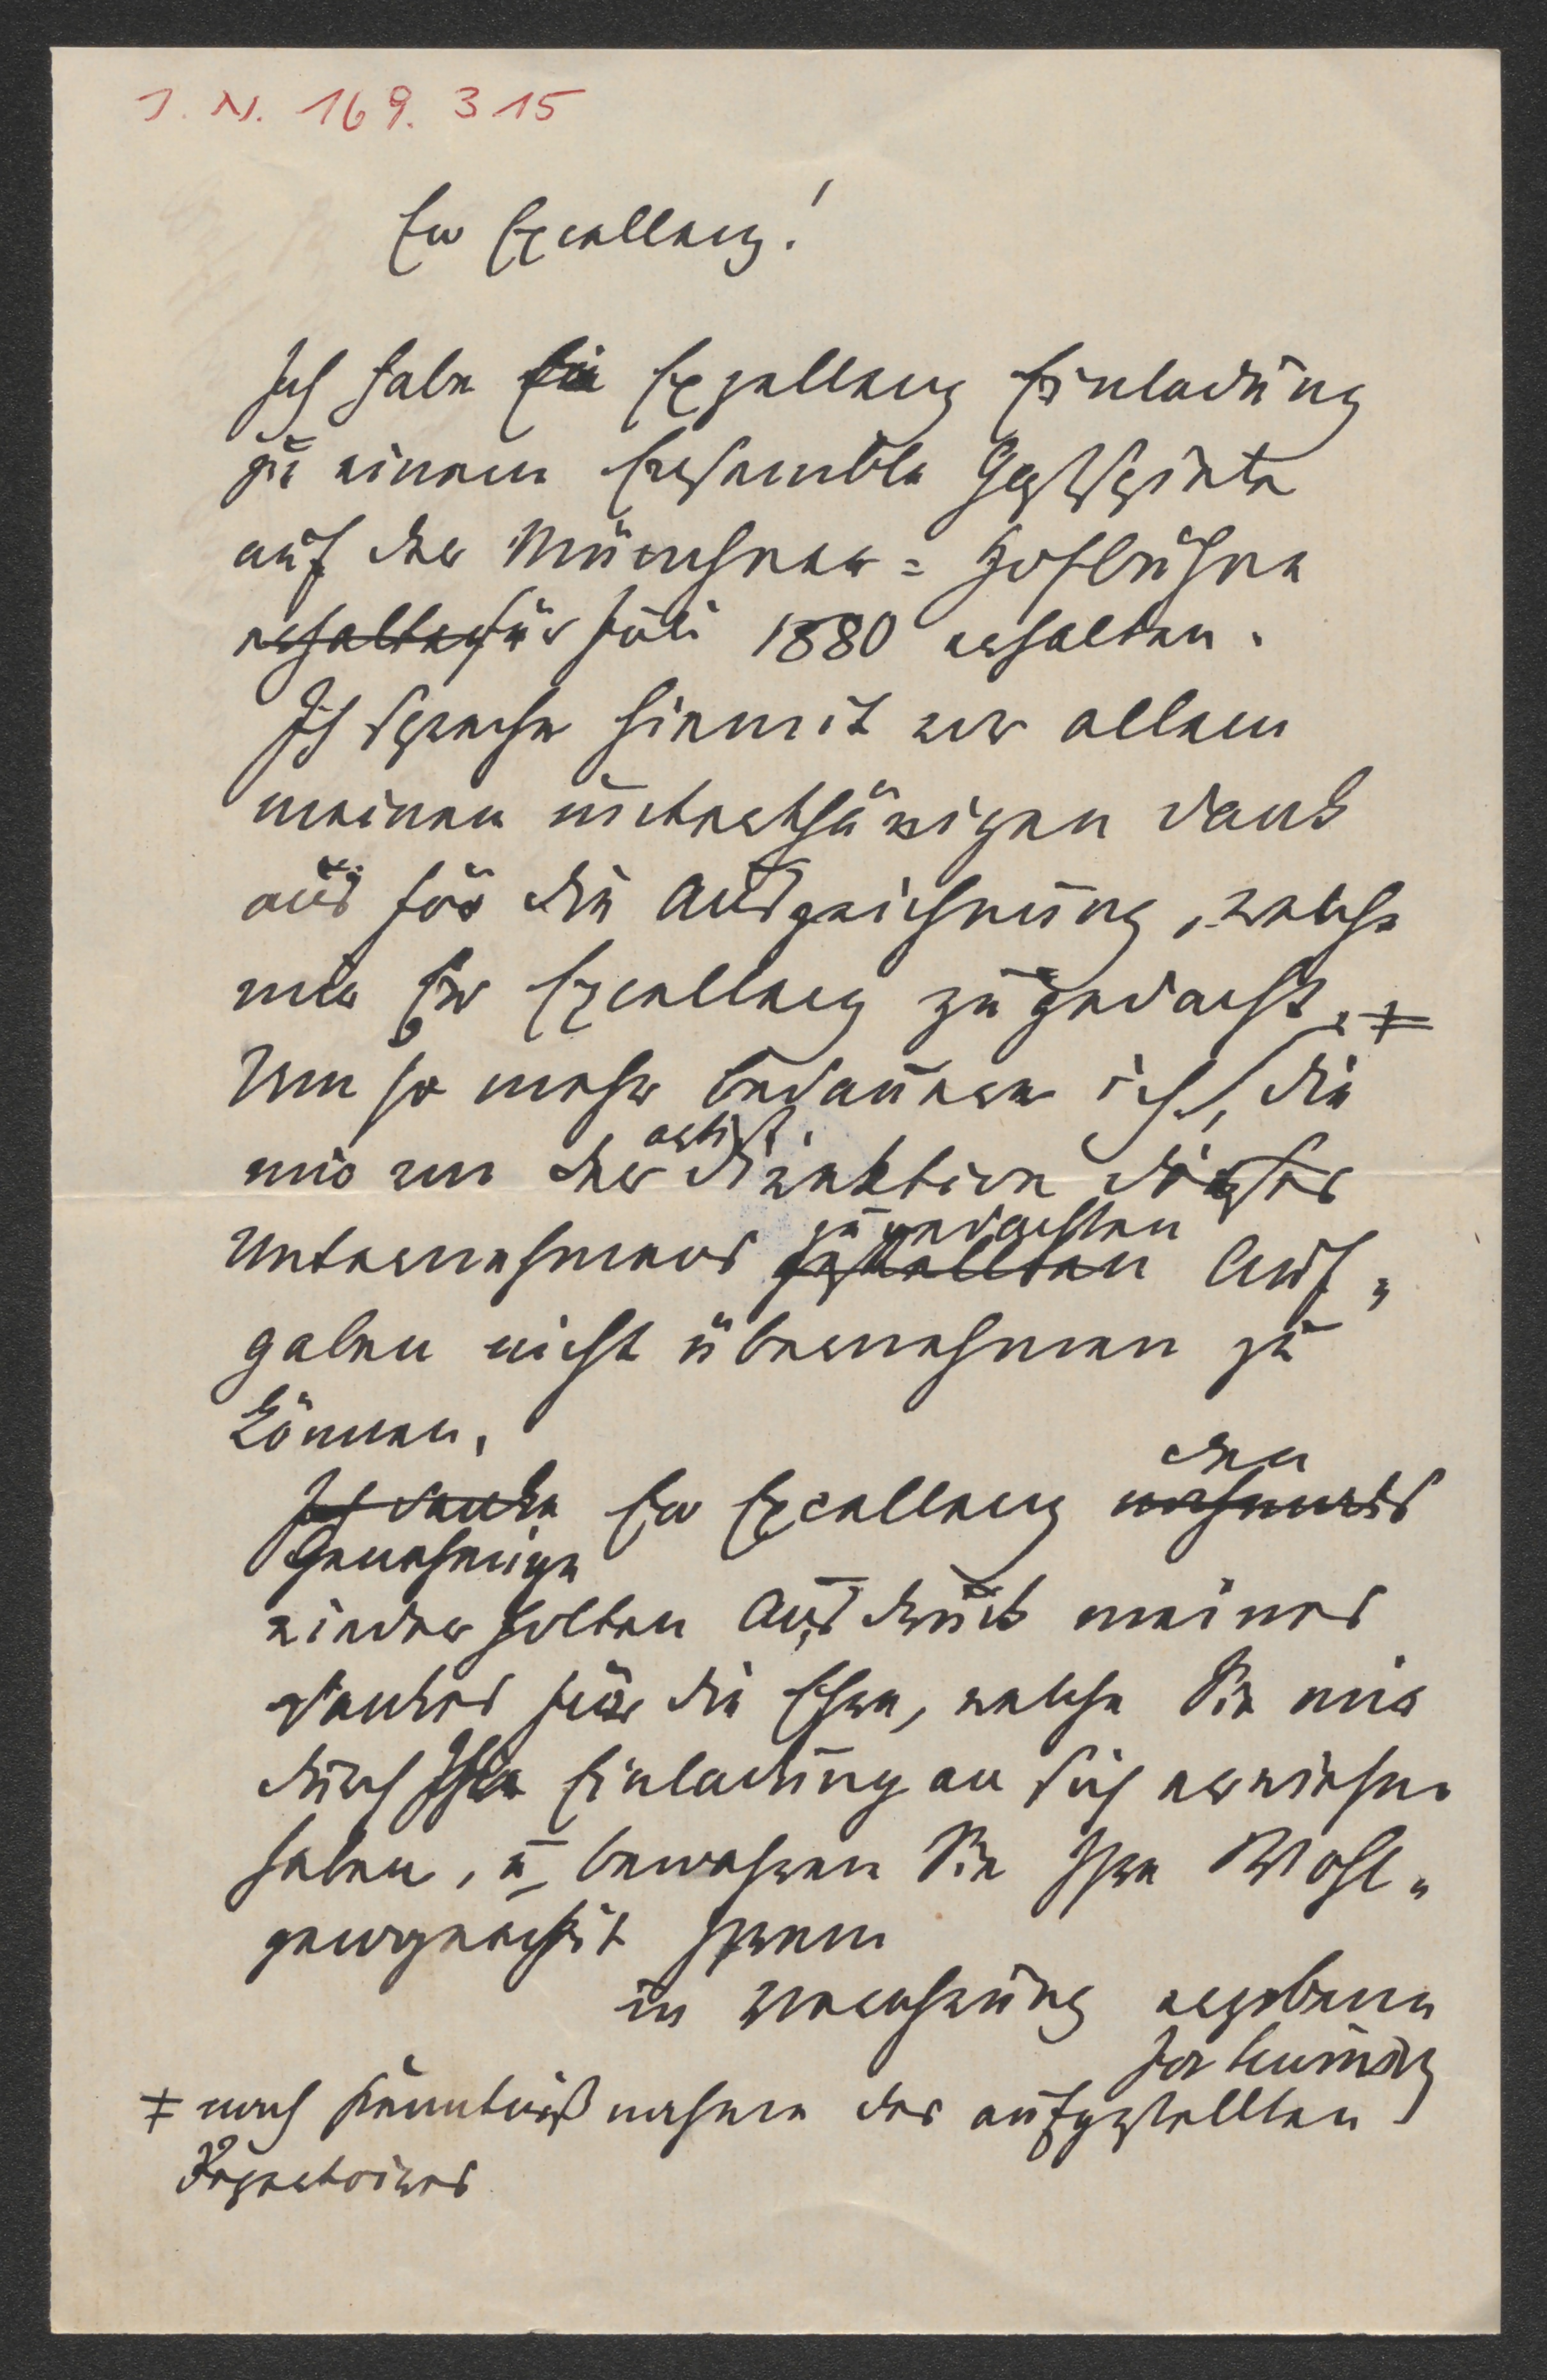 J. N. 169.315
Ew Excellenz!
Ich habe Ew Exzellenz Einladung
zu einem Ensemble Gastspiele
auf der Münchner=Hofbühne
erhalten für Juli 1880 erhalten.
Ich spreche hiermit vor allem
meinen unterthänigen Dank
aus für die Auszeichnung, welche
mir Ew Excellenz zugedacht, ≠
Um so mehr bedauere ich, die
mir von der artist. Direktion dieses
Unternehmens gestellten zugedachten Auf„
gaben nicht übernehmen zu
können.
Ich danke Ew Excellenz nochmals den
Genehmige
wiederholten Ausdruck meines
Dankes für die Ehre, welche Sie mir
durch Ihre Einladung an sich erwiesen
haben, u bewahren Sie Ihre Wohl„
gewogenheit Ihrem
in Verehrung ergebenen
≠ nach Kenntnißnahme des aufgestellten
Repertoires